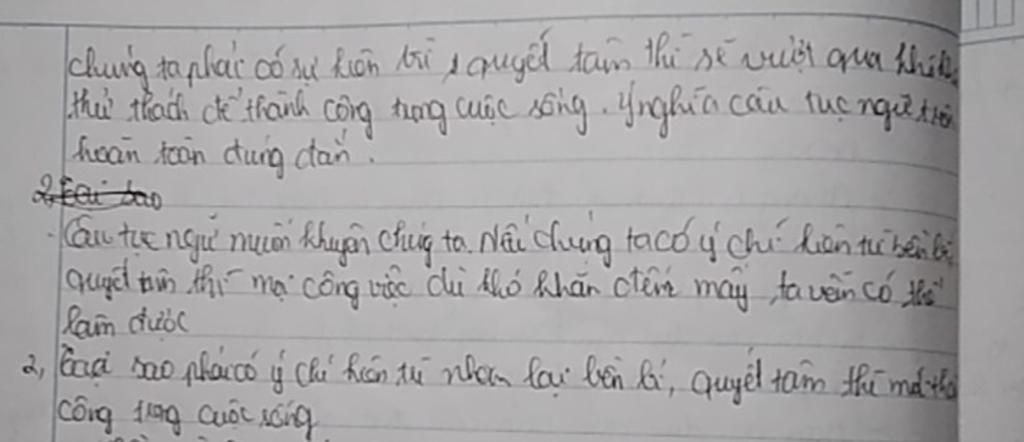 chúng ta phải có sự kiên trì, quyết tâm thì sẽ vượt qua khó khăn
thử thách để thành công trong cuộc sống. Ý nghĩa câu tục ngữ trên
hoàn toàn đúng đắn.
2, Tại sao
Câu tục ngữ muốn khuyên chúng ta. Nếu chúng ta có ý chí kiên trì bền bỉ
quyết tâm thì mọi công việc dù khó khăn đến mấy, ta vẫn có thể
làm được
2, Tại sao phải có ý chí kiên trì nhẫn lại bền bỉ, quyết tâm thì mới
công trong cuộc sống